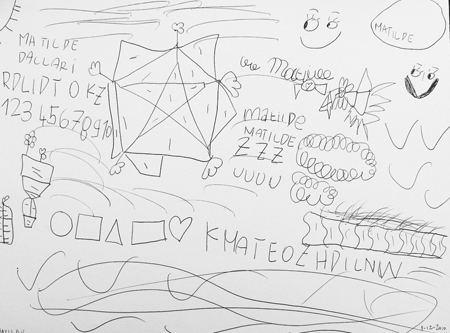 MATILDE
DALLARI
RDLIDTOKZ
12345678910
MATILDE
MATILDE
MATILDE
ZZZ
UUUU
KMATEOZHDILNW